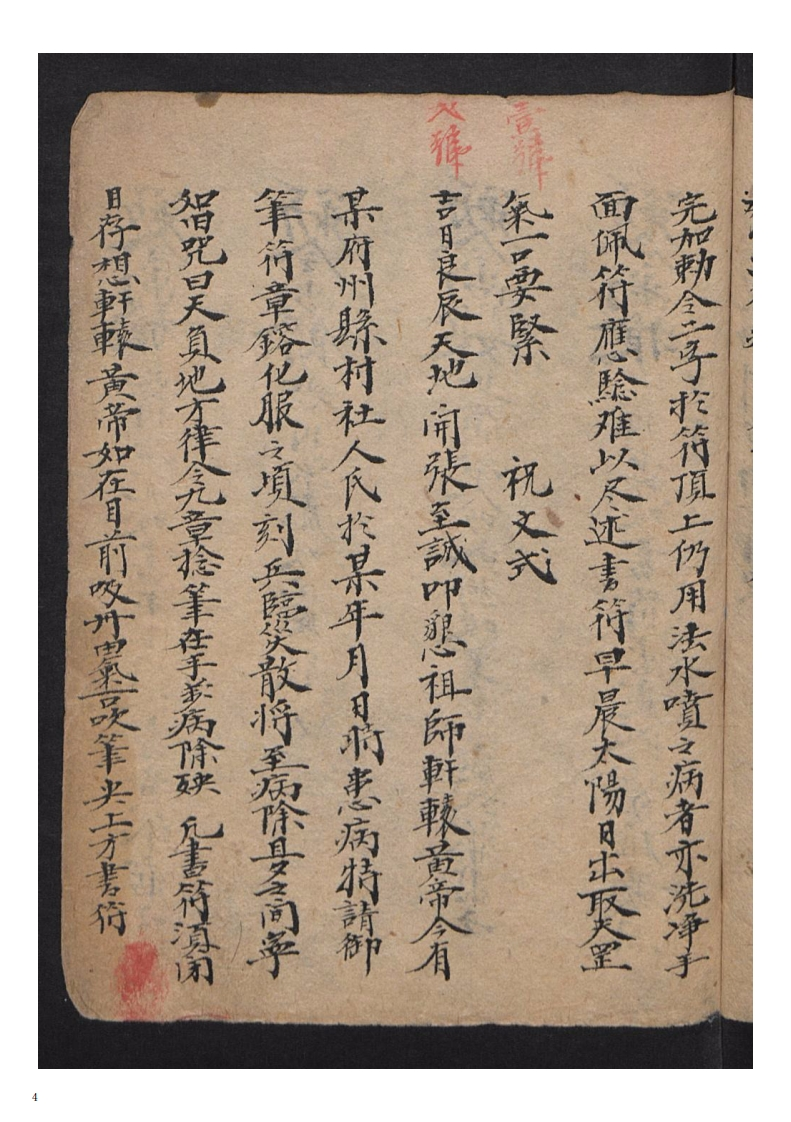 完加勅令二字於符頂上仍用法水噴之病者亦洗净手
面佩符應騐难以尽述書符早晨太陽日出取天罡
氣一口要緊 祝文式
吉日良辰天地開張至誠叩懇祖師軒轅黃帝今有
某府州縣村社人氏於某年月日時患病特請御
筆符章鎔化服之頃刻兵臨災散将至病除旦夕之間寧
如旧咒曰天負地方律令九章捻筆在手並病除殃 凡書符須閉
目存想軒轅黃帝如在目前吸丹田氣一口吹筆尖上方書符
壹號
號
4